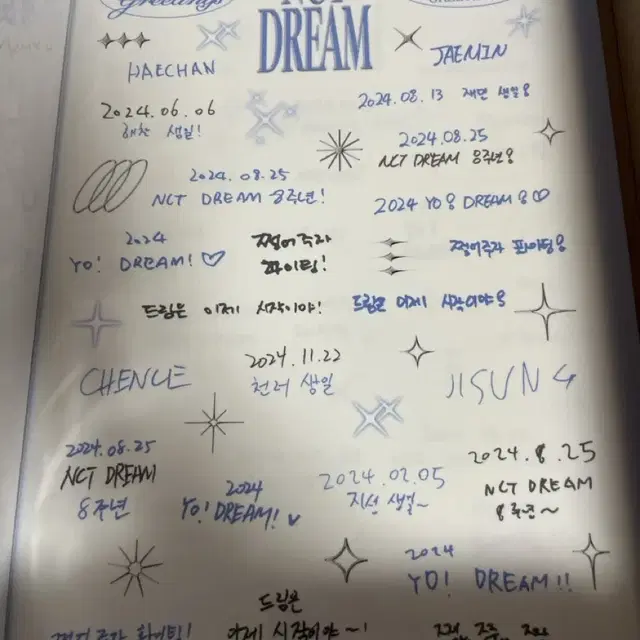 Greetings
NCT
DREAM
HAECHAN
JAEMIN
2024.06.06
해찬 생일!
2024.08.13 재민 생일
2024.08.25
NCT DREAM 8주년
2024.08.25
NCT DREAM 8주년!
2024 YO DREAM ♡
2024
YO! DREAM! ♡
쩔어주자
파이팅!
쩔어주자 파이팅
드림은 이제 시작이야!
드림은 이제 시작이야
CHENLE
2024.11.22
천러 생일
JISUNG
2024.08.25
NCT DREAM
8주년
2024
YO! DREAM! ♥
2024.02.05
지성 생일~
2024.8.25
NCT DREAM
8주년~
2024
YO! DREAM!!
드림은
이제 시작이야~!